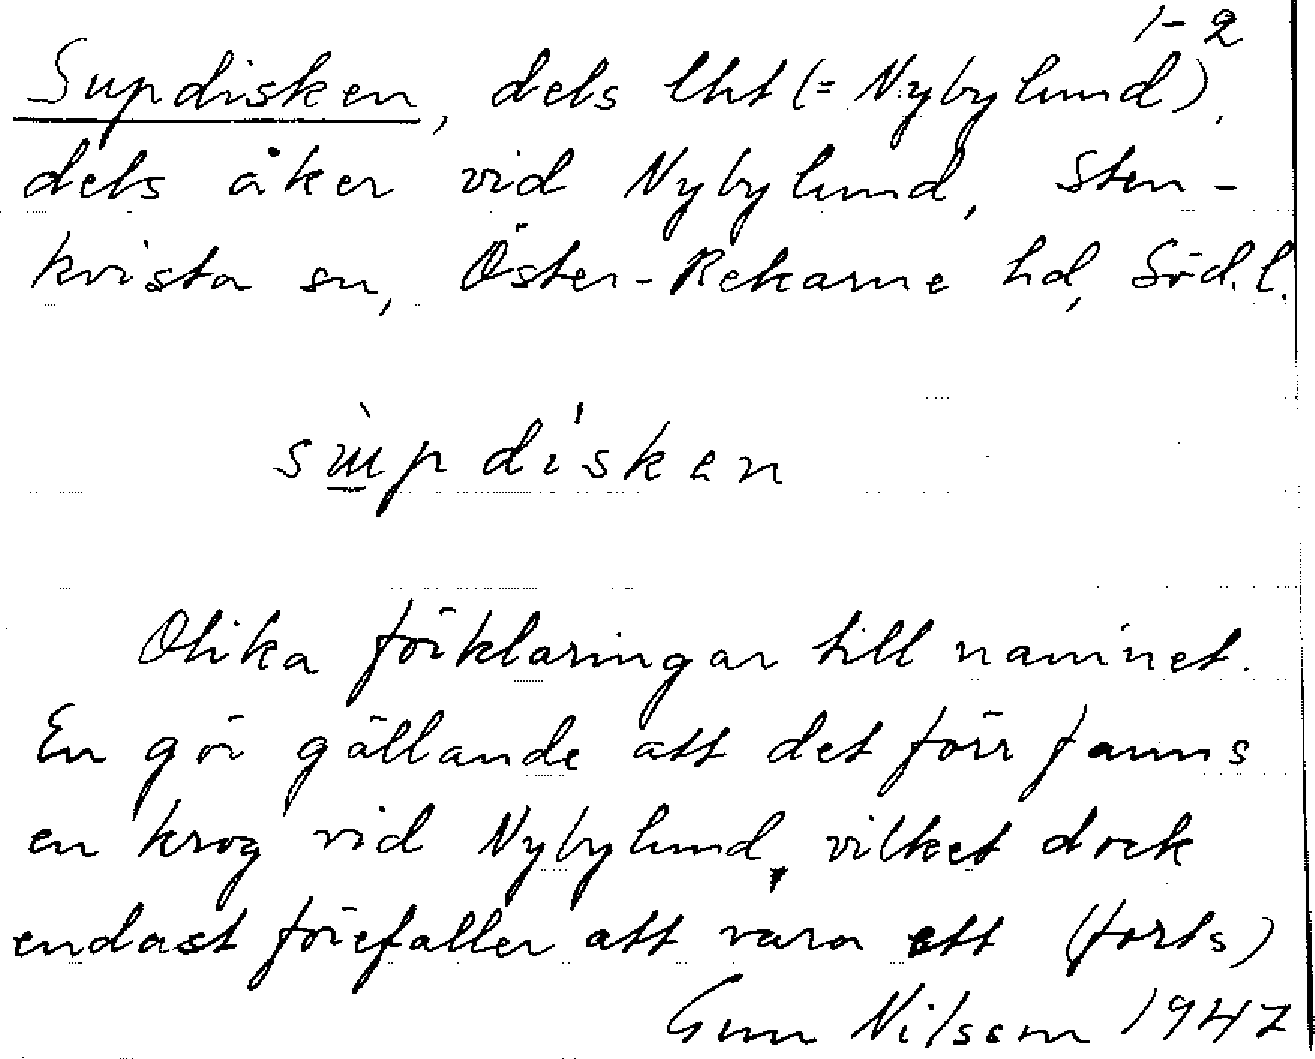 1-2
Supdisken, dels lht (= Nybylund),
dels åker vid Nybylund, Sten-
kvista sn, Öster-Rekarne hd, Söd.l.
sùpdísken
Olika förklaringar till namnet.
En gör gällande att det förr fanns
en krog vid Nybylund, vilket dock
endast förefaller att vara ett (forts)
Gun Nilsson 1947